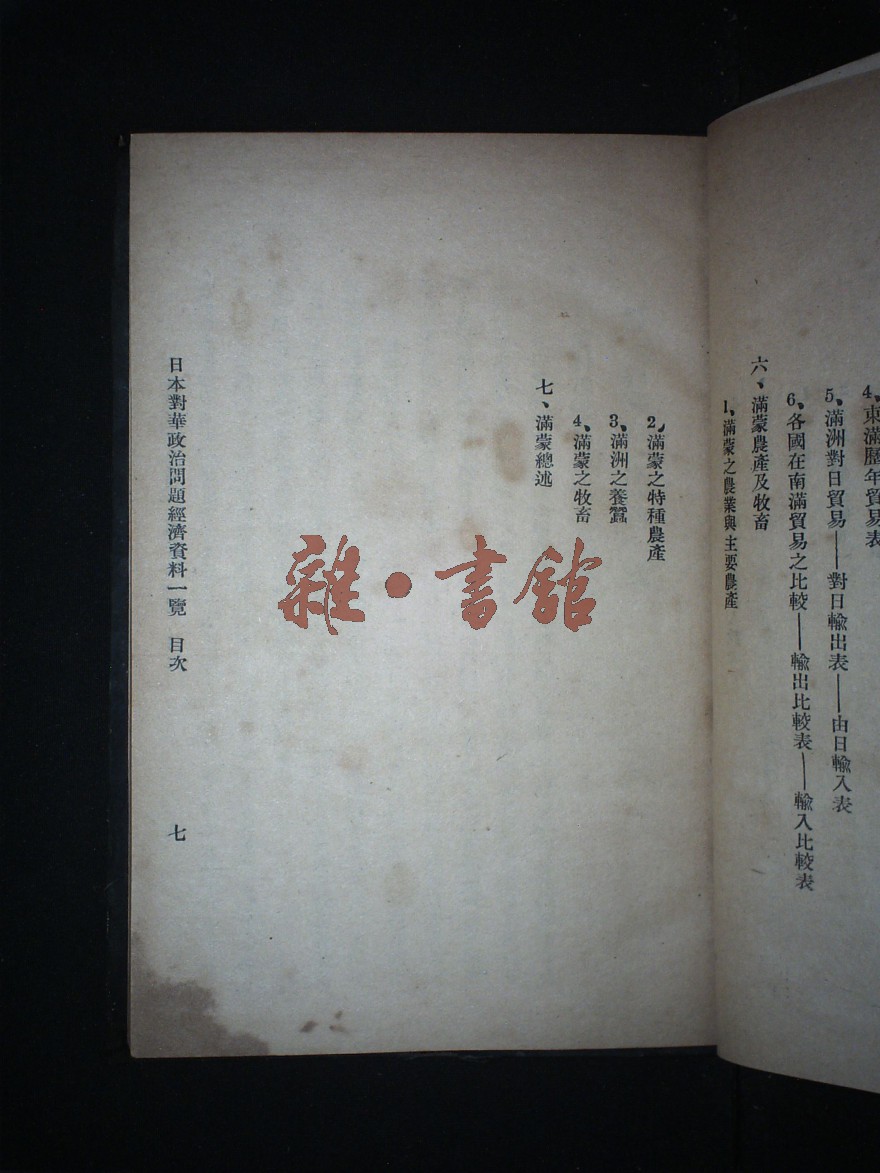 4、東滿歷年貿易表
5、滿洲對日貿易——對日輸出表——由日輸入表
6、各國在南滿貿易之比較——輸出比較表——輸入比較表
六、滿蒙農產及牧畜
1、滿蒙之農業與主要農產
2、滿蒙之特種農產
3、滿洲之養蠶
4、滿蒙之牧畜
七、滿蒙總述
日本對華政治問題經濟資料一覽　目次
七
雜·書館